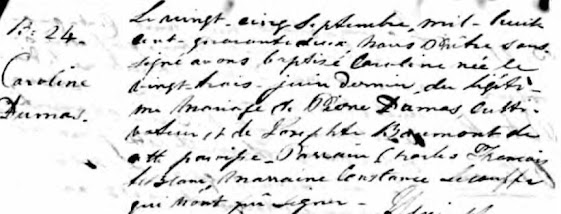 B. 24.
Caroline
Dumas.
Le vingt-cinq Septembre, mil-huit
cent-quarante deux, Nous Prêtre sous-
signé avons baptisé Caroline née le
vingt-trois juin dernier, du légiti-
me mariage de Dumas, Culti-
vateur, et de Josephte Beaumont de
paroisse. Parrain Charles François
Marraine Constance
qui n'ont pu signer.